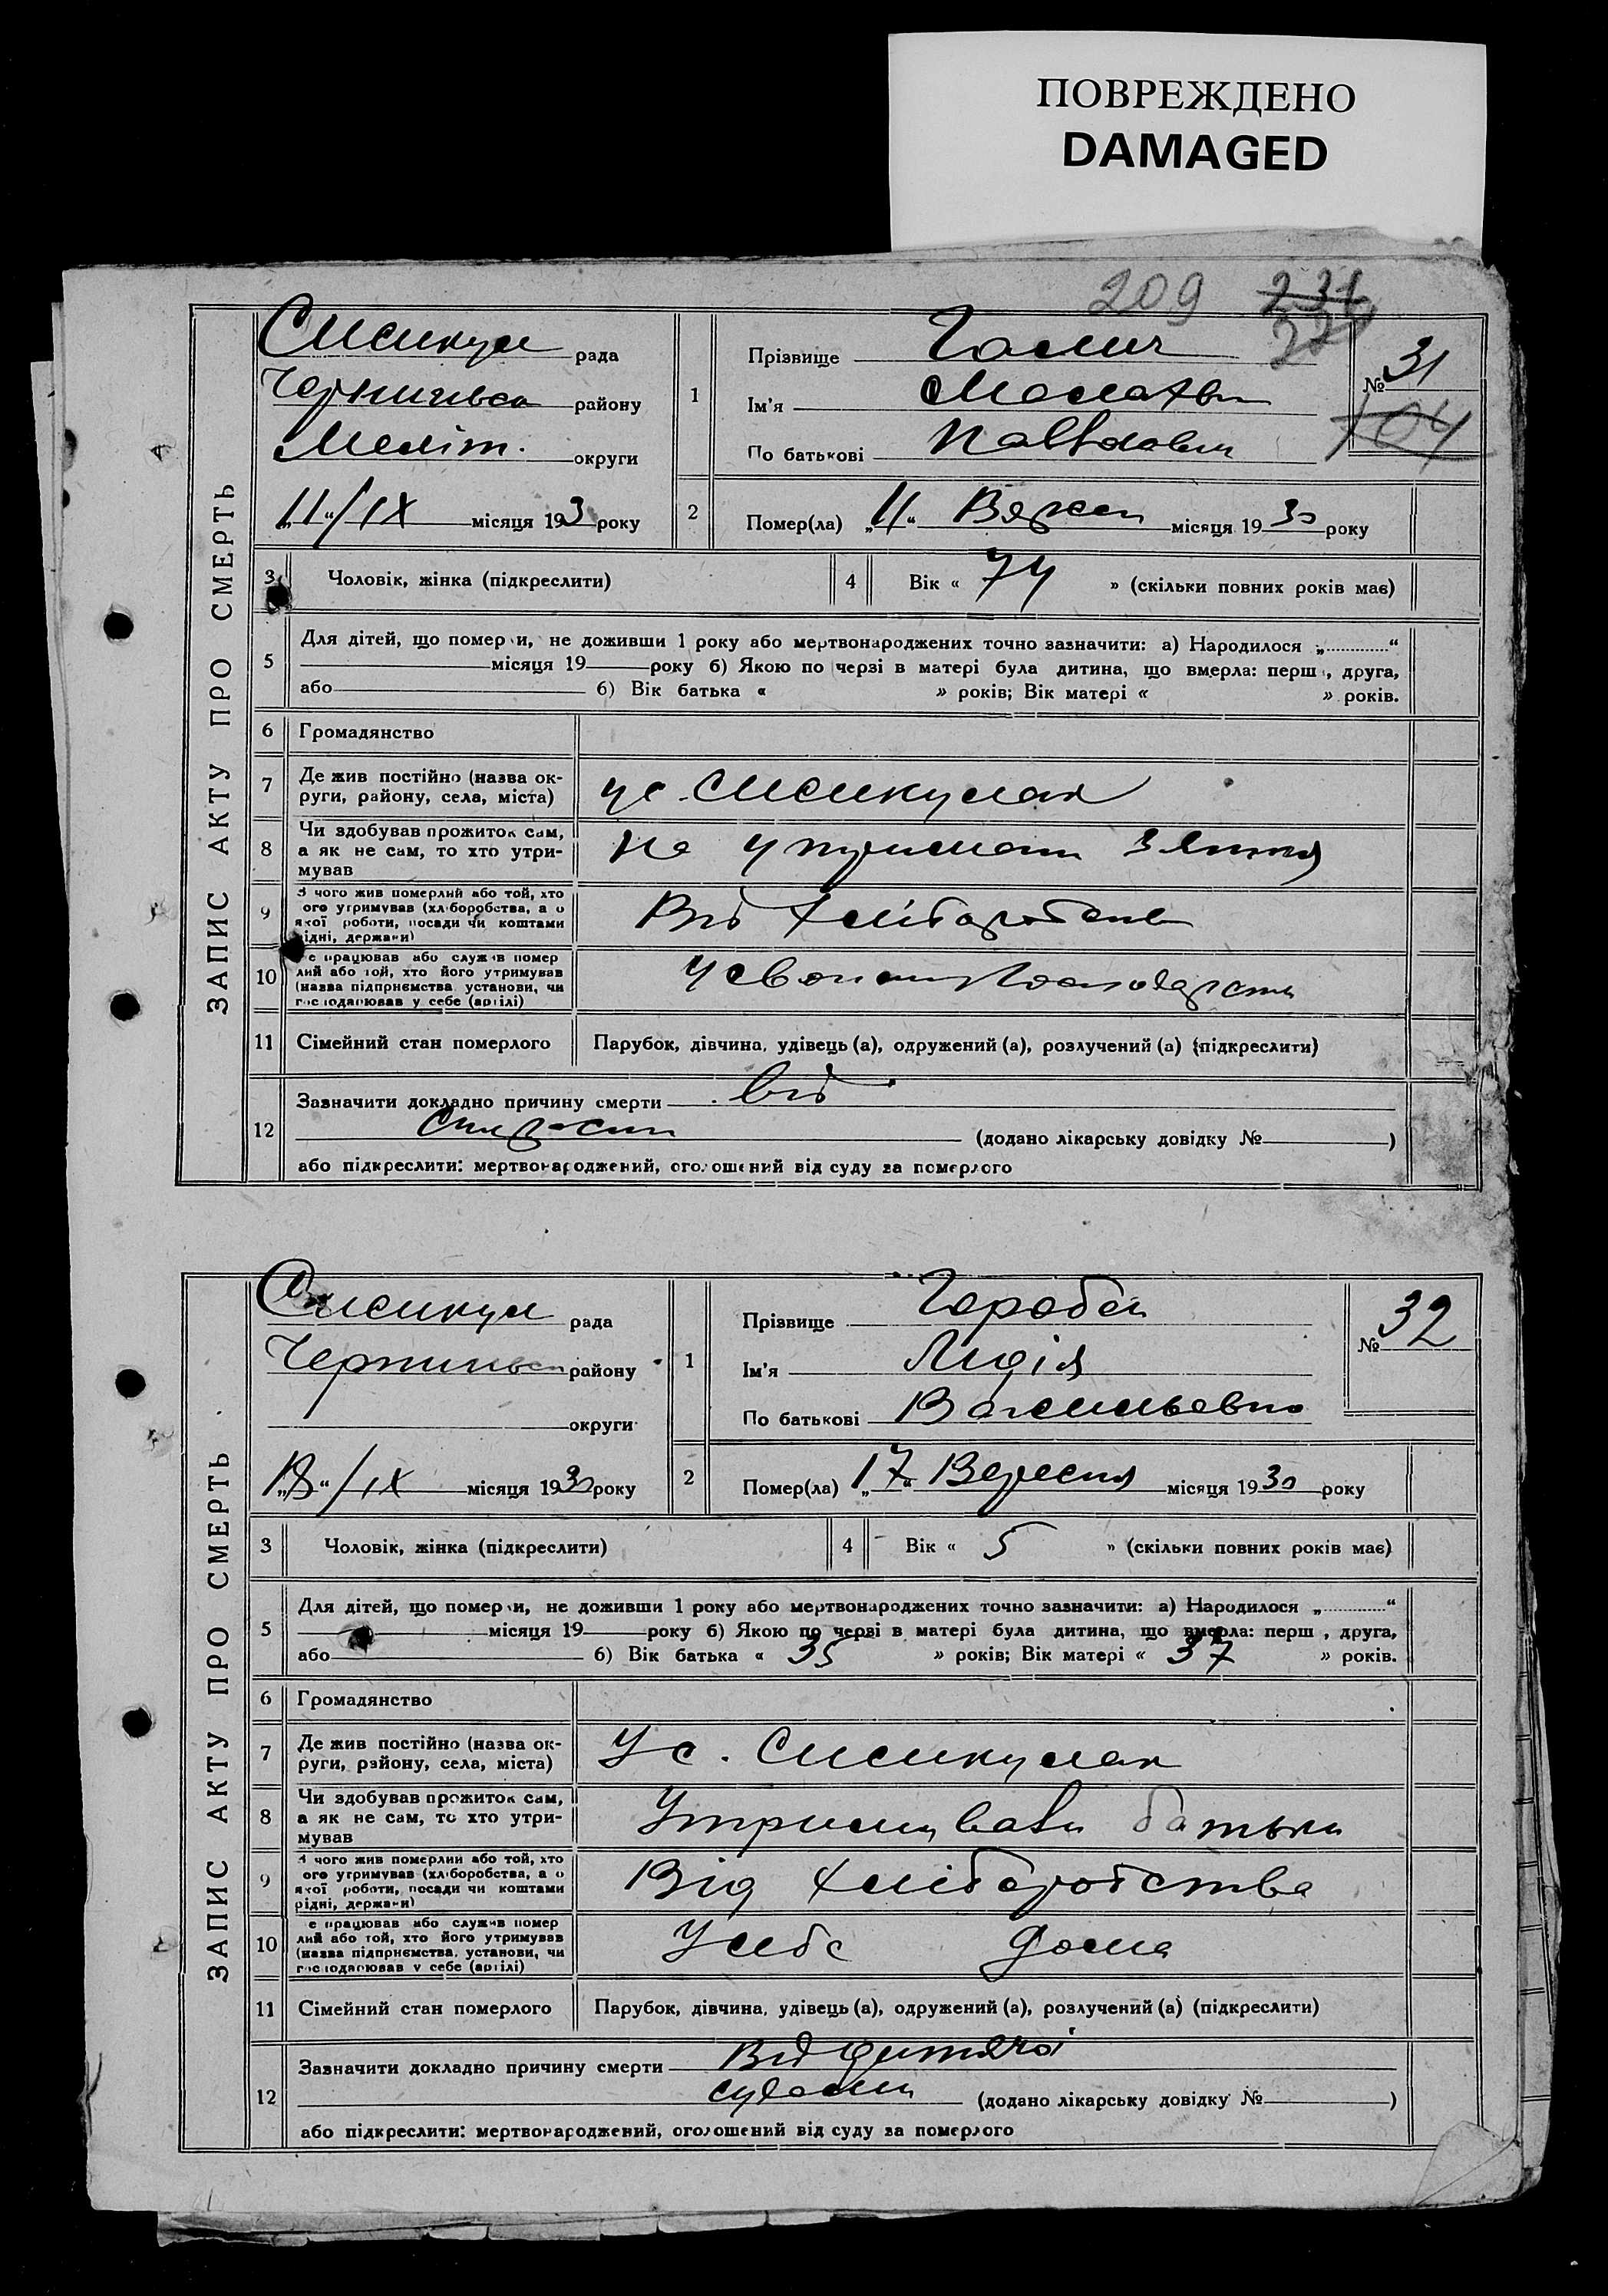 ПОВРЕЖДЕНО
DAMAGED
209 231
ЗАПИС АКТУ ПРО СМЕРТЬ
рада
району
Меліт. округи
„11“/IX місяця 193 року
1
Прізвище
Ім'я
По батькові
№ 31
104
2
Помер(ла) „11“ місяця 1930 року
3 Чоловік, жінка (підкреслити)
4 Вік « 74 » (скільки повних років має)
5 Для дітей, що помер и, не доживши 1 року або мертвонароджених точно зазначити: а) Народилося „ “
місяця 19 року б) Якою по черзі в матері була дитина, що вмерла: перш , друга,
або б) Вік батька « » років; Вік матері « » років.
6 Громадянство
7 Де жив постійно (назва ок-
руги, району, села, міста)
у с.
8 Чи здобував прожиток сам,
а як не сам, то хто утри-
мував
На
9 З чого жив померлий або той, хто
ого утримував (хліборобства, а о
якої роботи, посади чи коштами
рідні, держави)
Від
10 е працював або служив помер
лий або той, хто його утримував
(назва підприємства, установи, чи
господарював у себе (артілі)
11 Сімейний стан померлого
Парубок, дівчина, удівець (а), одружений (а), розлучений (а) (підкреслити)
12 Зазначити докладно причину смерти від
(додано лікарську довідку № )
або підкреслити: мертвонароджений, оголошений від суду за померлого
ЗАПИС АКТУ ПРО СМЕРТЬ
рада
району
округи
„18“/IX місяця 1930 року
1
Прізвище
Ім'я Лидія
По батькові Васильевна
№ 32
2
Помер(ла) „17“ Вересня місяця 1930 року
3 Чоловік, жінка (підкреслити)
4 Вік « 5 » (скільки повних років має)
5 Для дітей, що помер и, не доживши 1 року або мертвонароджених точно зазначити: а) Народилося „ “
місяця 19 року б) Якою по черзі в матері була дитина, що вмерла: перш , друга,
або б) Вік батька « 35 » років; Вік матері « 37 » років.
6 Громадянство
7 Де жив постійно (назва ок-
руги, району, села, міста)
У с.
8 Чи здобував прожиток сам,
а як не сам, то хто утри-
мував
Утримували батьки
9 З чого жив померлий або той, хто
ого утримував (хліборобства, а о
якої роботи, посади чи коштами
рідні, держави)
Від хліборобства
10 е працював або служив помер
лий або той, хто його утримував
(назва підприємства, установи, чи
господарював у себе (артілі)
У себе дома
11 Сімейний стан померлого
Парубок, дівчина, удівець (а), одружений (а), розлучений (а) (підкреслити)
12 Зазначити докладно причину смерти Від
(додано лікарську довідку № )
або підкреслити: мертвонароджений, оголошений від суду за померлого